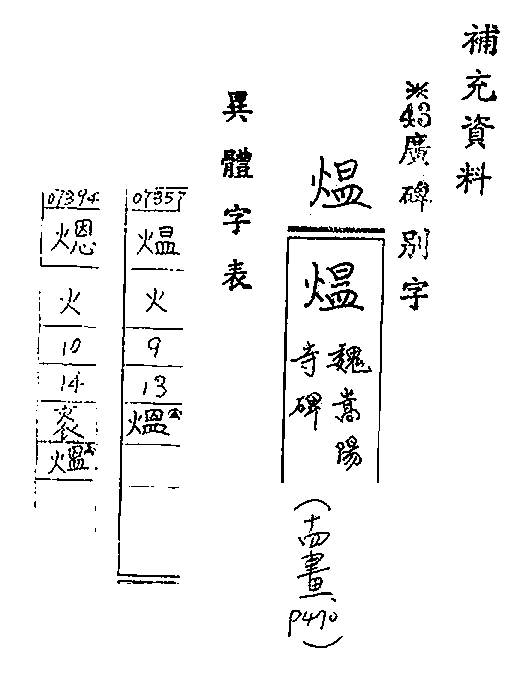 補充資料
※43廣碑別字
煴
煴
魏嵩陽
寺碑
(十四畫
P470)
異體字表
07357
煴
火
9
13
熅
07394
熜
火
10
14
熅